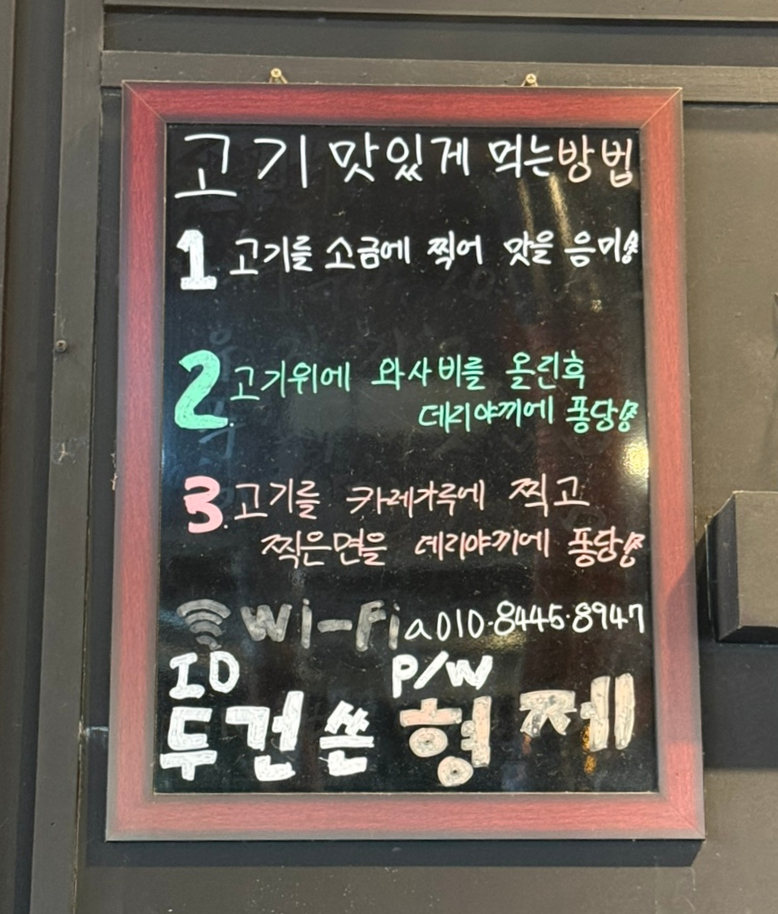 고기 맛있게 먹는방법
1 고기를 소금에 찍어 맛을 음미!
2. 고기위에 와사비를 올린후
데리야끼에 퐁당!
3. 고기를 카레가루에 찍고
찍은면을 데리야끼에 퐁당!
Wi-Fi a010·8445·8947
ID P/W
두건쓴 형제